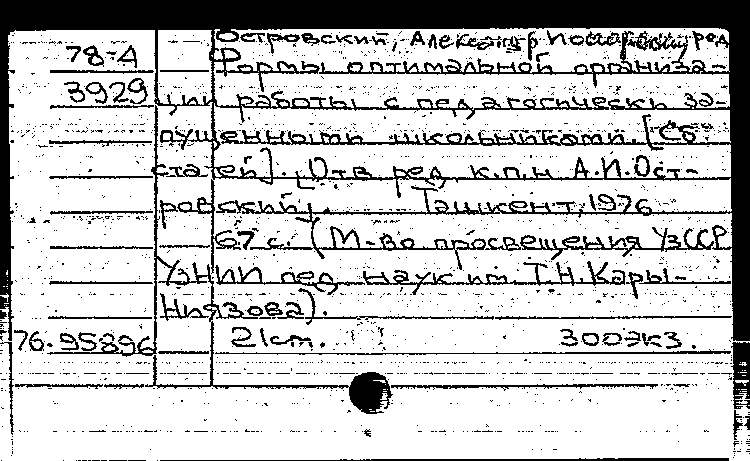 Островский, Александр ред
78-4 Формы оптимальной организа-
3929 ции работы с педагогически за-
пущенными школьниками. [Сб.
статей]. [Отв. ред. к.п.н А.И.Ост-
ровский]. Ташкент, 1976
67 с. (М-во просвещения УзССР
УзНИИ пед. наук им. Т.Н.Кары-
Ниязова).
76.95896 21cm. 300экз.